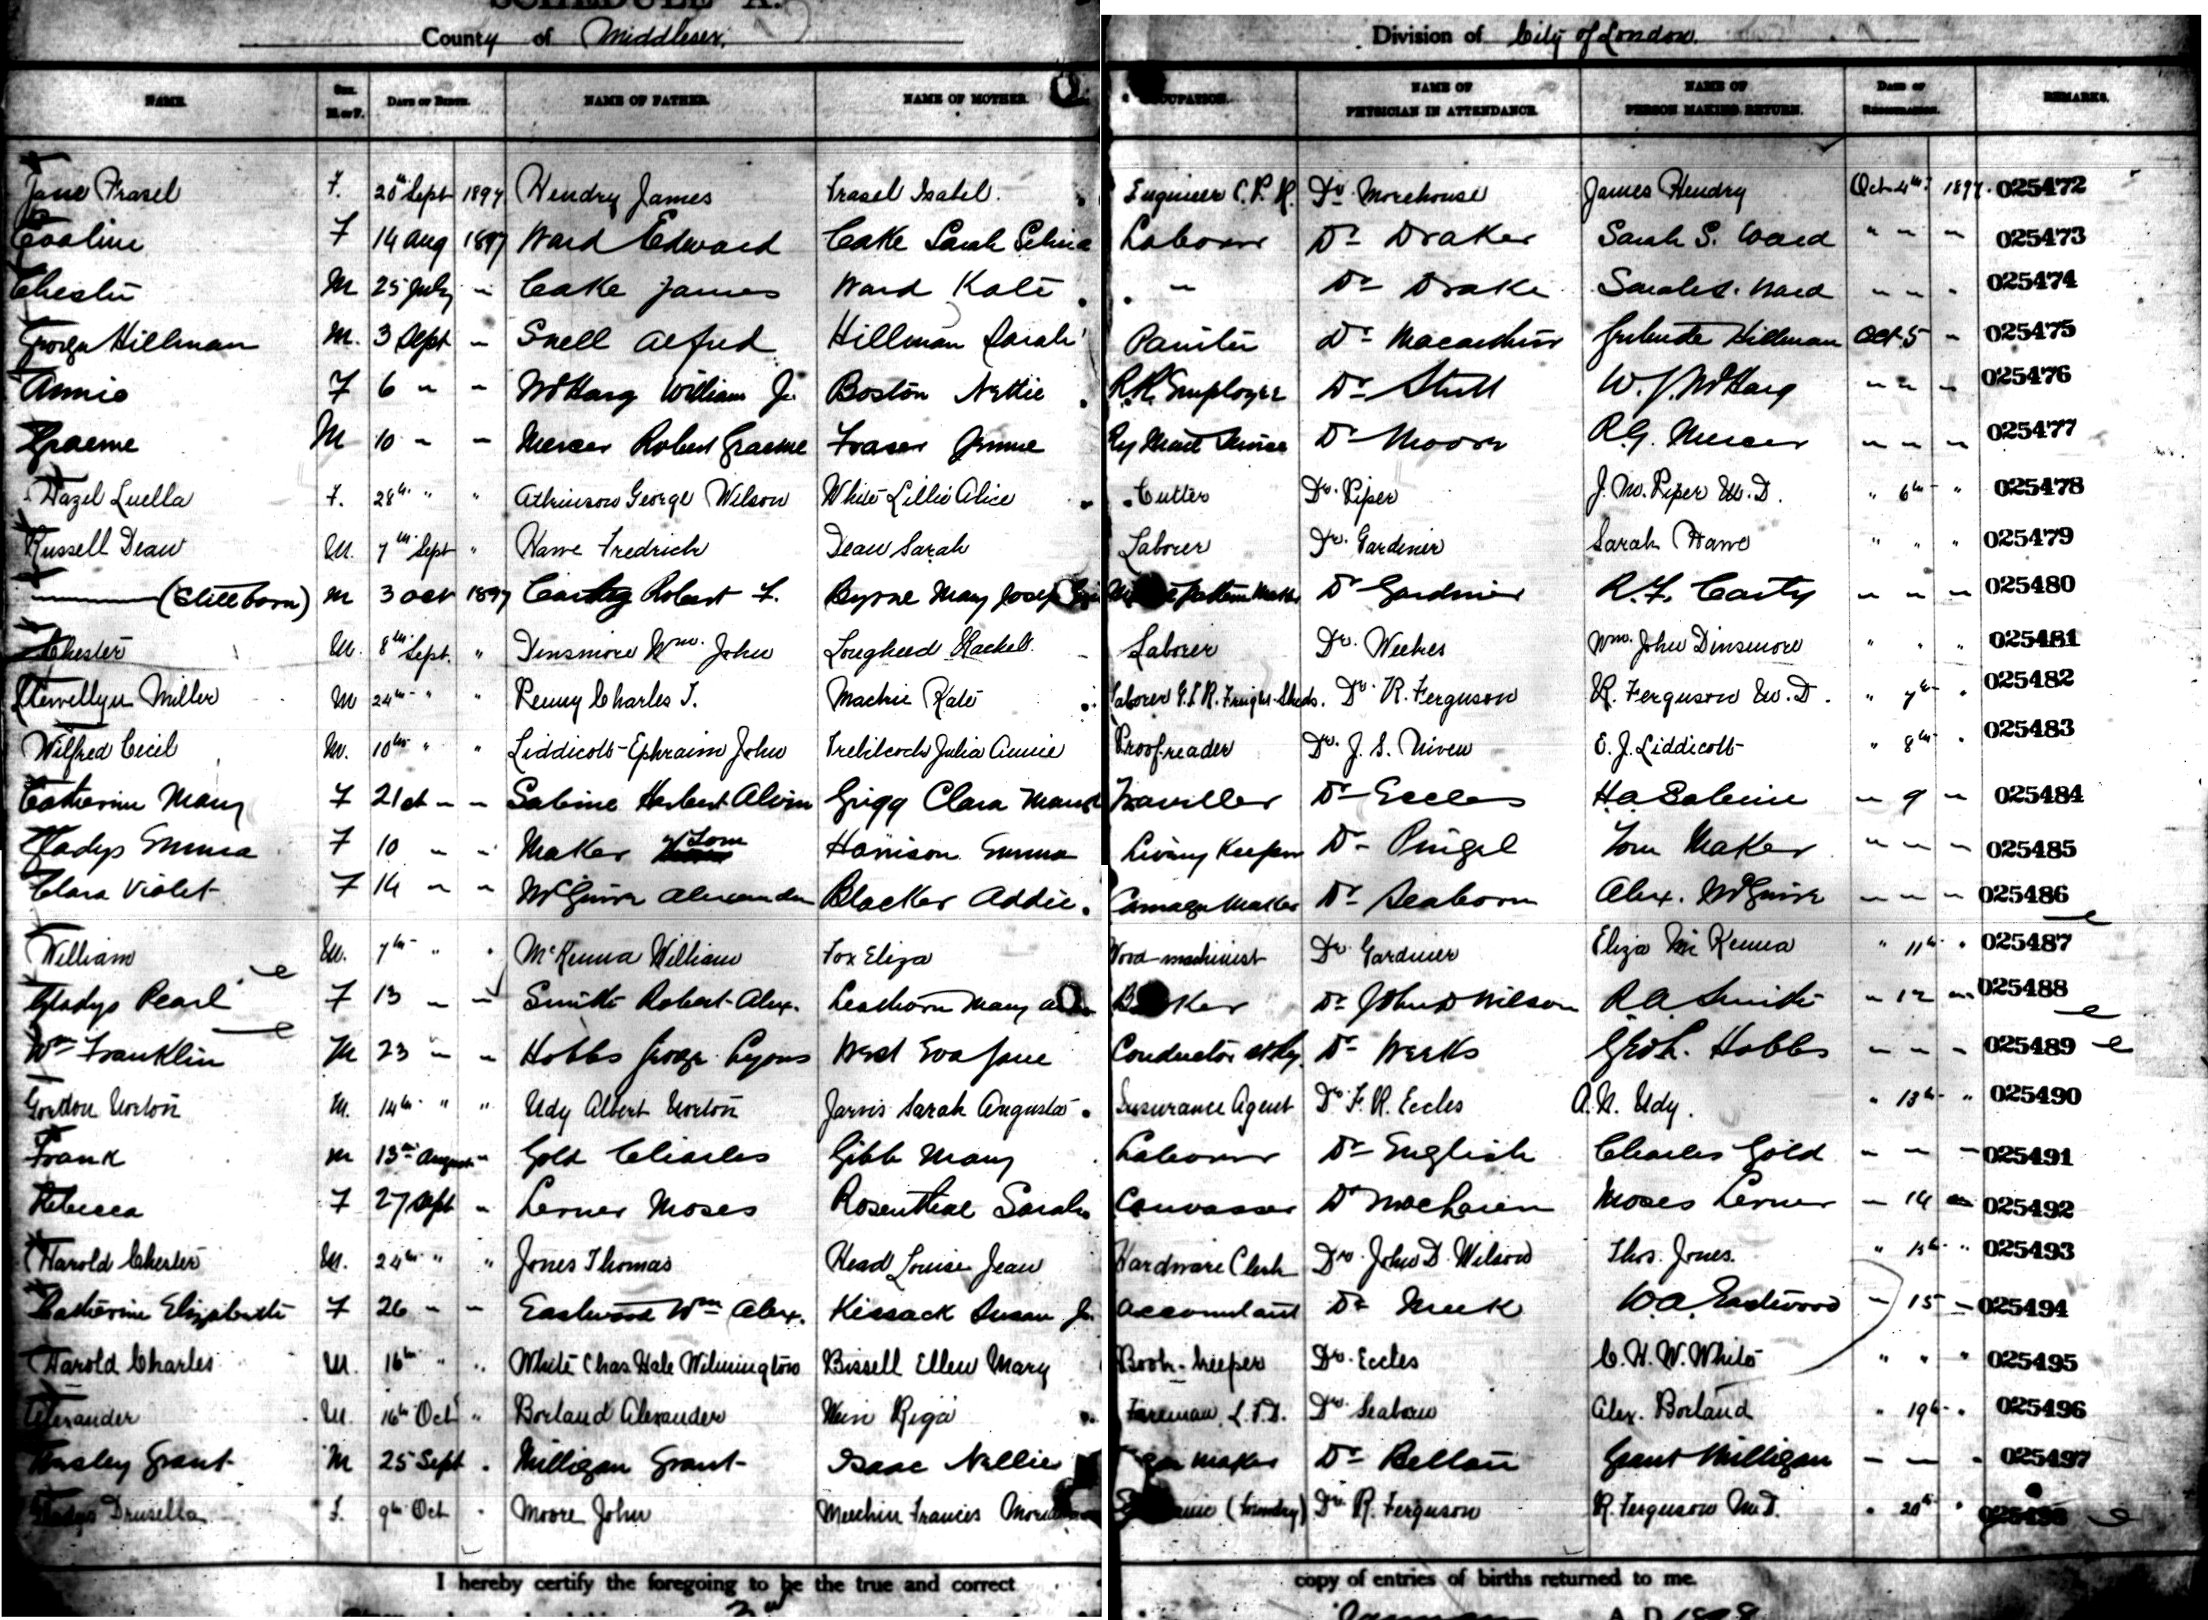 SCHEDULE A.
County of Middlesex. Division of City of London.
NAME. Sex. M. or F. DATE OF BIRTH. NAME OF FATHER. NAME OF MOTHER. OCCUPATION. NAME OF PHYSICIAN IN ATTENDANCE. NAME OF PERSON MAKING RETURN. DATE OF REGISTRATION. REMARKS.
Jane Frasel F. 20th Sept 1897 Hendry James Frasel Isabel. Engineer C.P.R. Dr. Morehouse James Hendry Oct 4th 1897. 025472
Evaline F 14 Aug 1897 Ward Edward Cake Sarah Selina Labourer Dr Draker Sarah S. Ward " " " 025473
Chester M 25 July " Cake James Ward Kate " Dr Drake Sarah S. Ward " " " 025474
George Hillman M. 3 Sept " Snell Alfred Hillman Sarah Painter Dr Macarthur Gertrude Hillman Oct 5 " 025475
Annie F 6 " " McHarg William J. Boston Nettie R.R. Employee Dr Stutt W. J. McHarg " " " 025476
Graeme M 10 " " Mercer Robert Graeme Fraser Ry Mail Dr Moore R.G. Mercer " " " 025477
Hazel Luella F. 28th " " Atkinson George Wilson White Lillie Alice Cutter Dr. Piper J. M. Piper M.D. " 6th " 025478
Russell Dean M. 7th Sept " Hawe Fredrick Dean Sarah Laborer Dr. Gardiner Sarah Hawe " " " 025479
(Stillborn) M 3 Oct 1897 Carty Robert F. Byrne Mary Pattern Maker Dr Gardiner R. F. Carty " " " 025480
Chester M. 8th Sept. " Dinsmore Wm. John Lougheed Rachel. Laborer Dr. Weekes Wm. John Dinsmore " " " 025481
Llewellyn Miller M 24th " " Penny Charles T. Mackie Kate Laborer G.T.R. Freight Sheds. Dr. R. Ferguson R. Ferguson M.D. " 7th " 025482
Wilfred Cecil M. 10th " " Liddicott Ephraim John Trebilcock Julia Annie Proofreader Dr. J. S. Niven E. J. Liddicott " 8th " 025483
Catherine Mary F 21st " " Sabine Herbert Alvin Grigg Clara Maud Traveller Dr Eccles H A Sabine " 9 " 025484
Gladys Emma F 10 " " Maker Tom Harrison Emma Livery Keeper Dr Pingel Tom Maker " " " 025485
Clara Violet F 14 " " McGuire Alexander Blacker Addie. Carriage Maker Dr Seaborn Alex. McGuire " " " 025486
William M. 7th " " McKenna William Fox Eliza Wood machinist Dr. Gardiner Eliza McKenna " 11th " 025487
Gladys Pearl F 13 " " Smith Robert Alex. Leathorn Mary Dr John D Wilson R A Smith " 12 " 025488
Wm Franklin M 23 " " Hobbs George Lyons West Eva Jane Conductor St Ry. Dr Weeks Geo L. Hobbs " " " 025489
Gordon Norton M. 14th " " Udy Albert Norton Jarvis Sarah Augusta Insurance Agent Dr. F. R. Eccles A. N. Udy. " 13th " 025490
Frank M 13th August " Gold Charles Gibb Mary Labourer Dr English Charles Gold " " " 025491
Rebecca F 27 Sept " Lerner Moses Rosenthal Sarah Canvasser Dr Moses Lerner " 14 " 025492
Harold Chester M. 24th " " Jones Thomas Head Louise Jean Hardware Clerk Dr. John D. Wilson Thos. Jones. " " 025493
Catherine Elizabeth F 26 " " Eastwood Wm Alex. Kissack Susan J. Accountant Dr Meek W. A. Eastwood " 15 " 025494
Harold Charles M. 16th " " White Chas Hale Wilmington Bissell Ellen Mary Book-keeper Dr. Eccles C. H. W. White " " " 025495
Alexander M. 16th Oct " Borland Alexander Riga Foreman Dr. Seaborn Alex. Borland " 19th " 025496
Grant M 25 Sept " Milligan Grant Isaac Nellie maker Dr Grant Milligan " " " 025497
Gladys Drusella F. 9th Oct " Moore John Meechin Frances (foundry) Dr. R. Ferguson R. Ferguson M.D. " 20th " 025498
I hereby certify the foregoing to be the true and correct copy of entries of births returned to me.
A. D. 1898